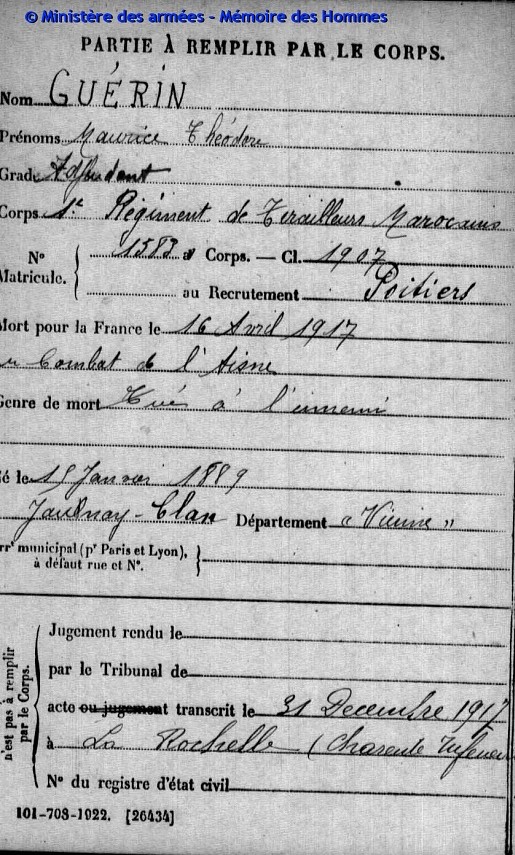 © Ministère des armées - Mémoire des Hommes
PARTIE À REMPLIR PAR LE CORPS.
Nom GUÉRIN
Prénoms Maurice Théodore
Grade Adjudant
Corps 1er Régiment de Tirailleurs Marocains
N° Matricule. { 1583 au Corps. — Cl. 1907
au Recrutement Poitiers
Mort pour la France le 16 Avril 1917
au Combat de l'Aisne
Genre de mort Tué à l'ennemi
Né le 15 Janvier 1889
Jaulnay-Clan Département « Vienne »
Arrt municipal (pr Paris et Lyon),
à défaut rue et N°.
Jugement rendu le
par le Tribunal de
acte ou jugement transcrit le 31 Decembre 1917
à La Rochelle (Charente Inférieure
N° du registre d'état civil
n'est pas à remplir
par le Corps.
101-708-1922. [26434]